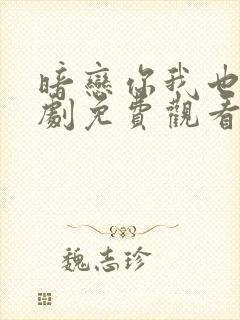 暗戀你我也
劇免費觀看
魏志珍